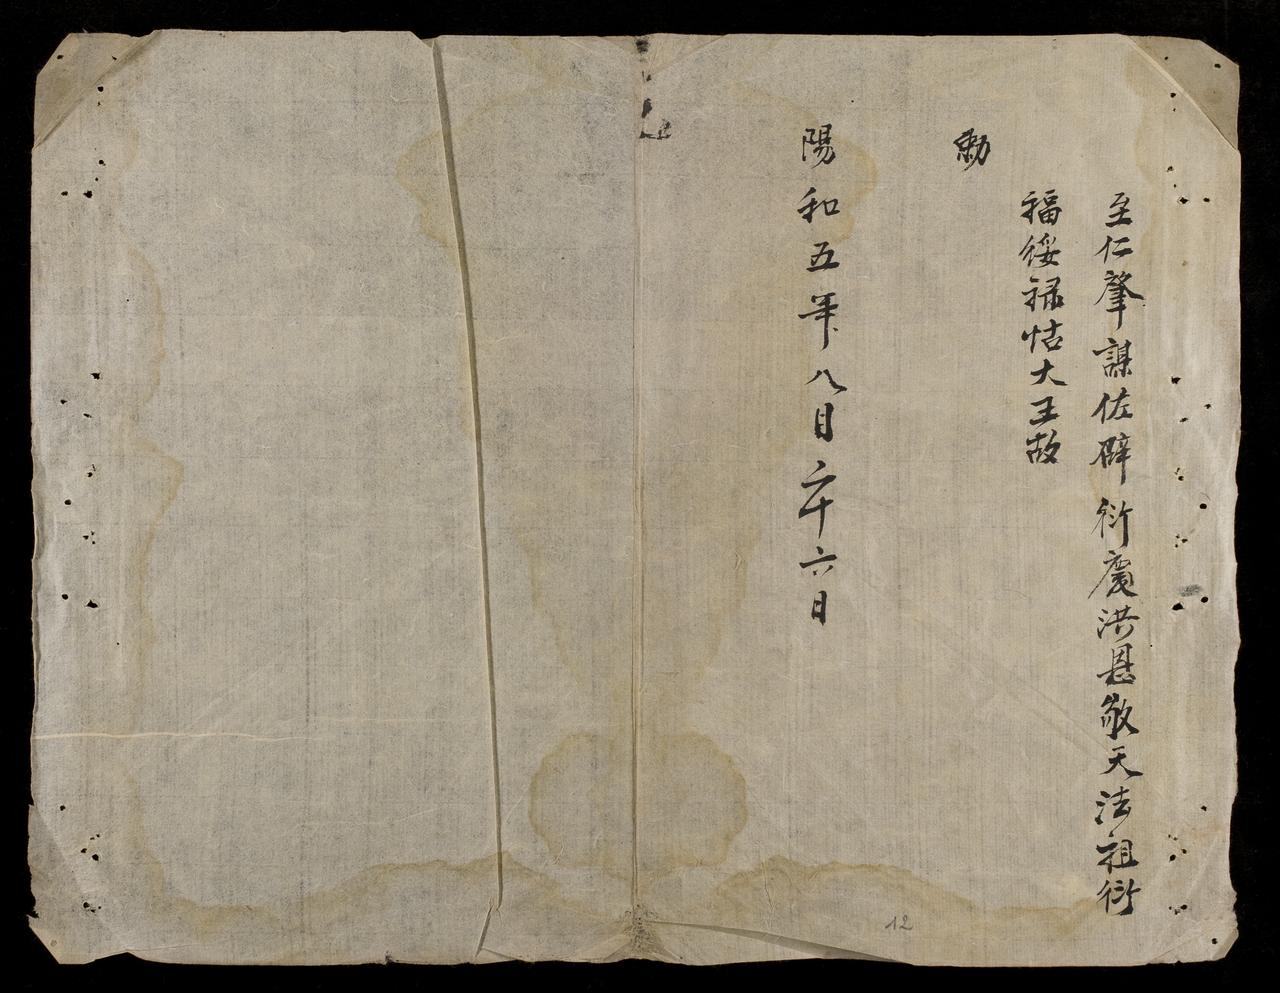 至仁肇謀佐辟衍慶洪恩敬天法祖衍
福綏祿怙大王故
勅
陽和五年八月二十六日
12